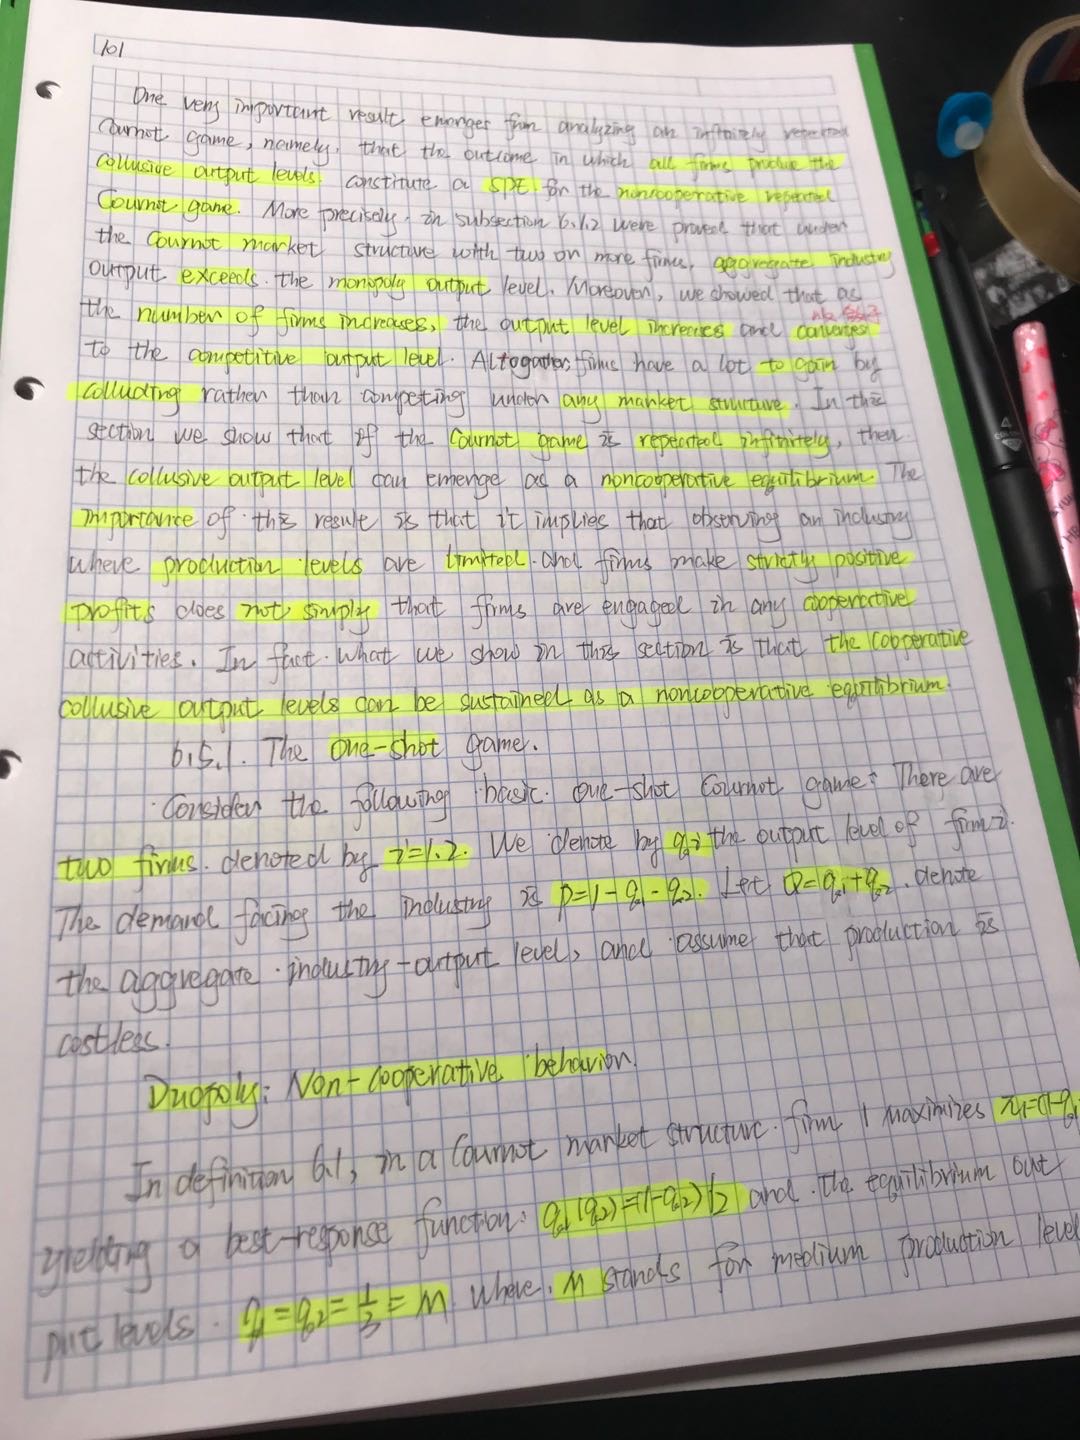 101
One very important result emerges from analyzing an infinitely repeated
Cournot game, namely, that the outcome in which all firms produce the
collusive output levels constitute a SPE for the noncooperative repeated
Cournot game. More precisely, in subsection 6.1.2 were proved that under
the Cournot market structure with two or more firms, aggregate industry
output exceeds the monopoly output level. Moreover, we showed that as
the number of firms increases, the output level increases and converges
to the competitive output level. Altogather, firms have a lot to gain by
colluding rather than competing under any market structure. In this
section we show that if the Cournot game is repeated infinitely, then
the collusive output level can emerge as a noncooperative equilibrium. The
importance of this result is that it implies that observing an industry
where production levels are limited and firms make strictly positive
profits does not simply that firms are engaged in any cooperative
activities. In fact. What we show in this section is that the cooperative
collusive output levels can be sustained as a noncooperative equilibrium.
6.5.1. The one-shot game.
Consider the following basic one-shot Cournot game: There are
two firms. denoted by i=1.2. We denote by qi the output level of firm i.
The demand facing the industry is p=1-q1-q2. Let Q=q1+q2. denote
the aggregate industry-output level, and assume that production is
costless.
Duopoly: Non-cooperative behavior.
In definition 6.1, in a Cournot market structure firm 1 maximizes π1=(1-q1
yielding a best-response function: q1(q2)=(1-q2)/2 and the equilibrium out
put levels. q1=q2=1/3=M where. M stands for medium production level